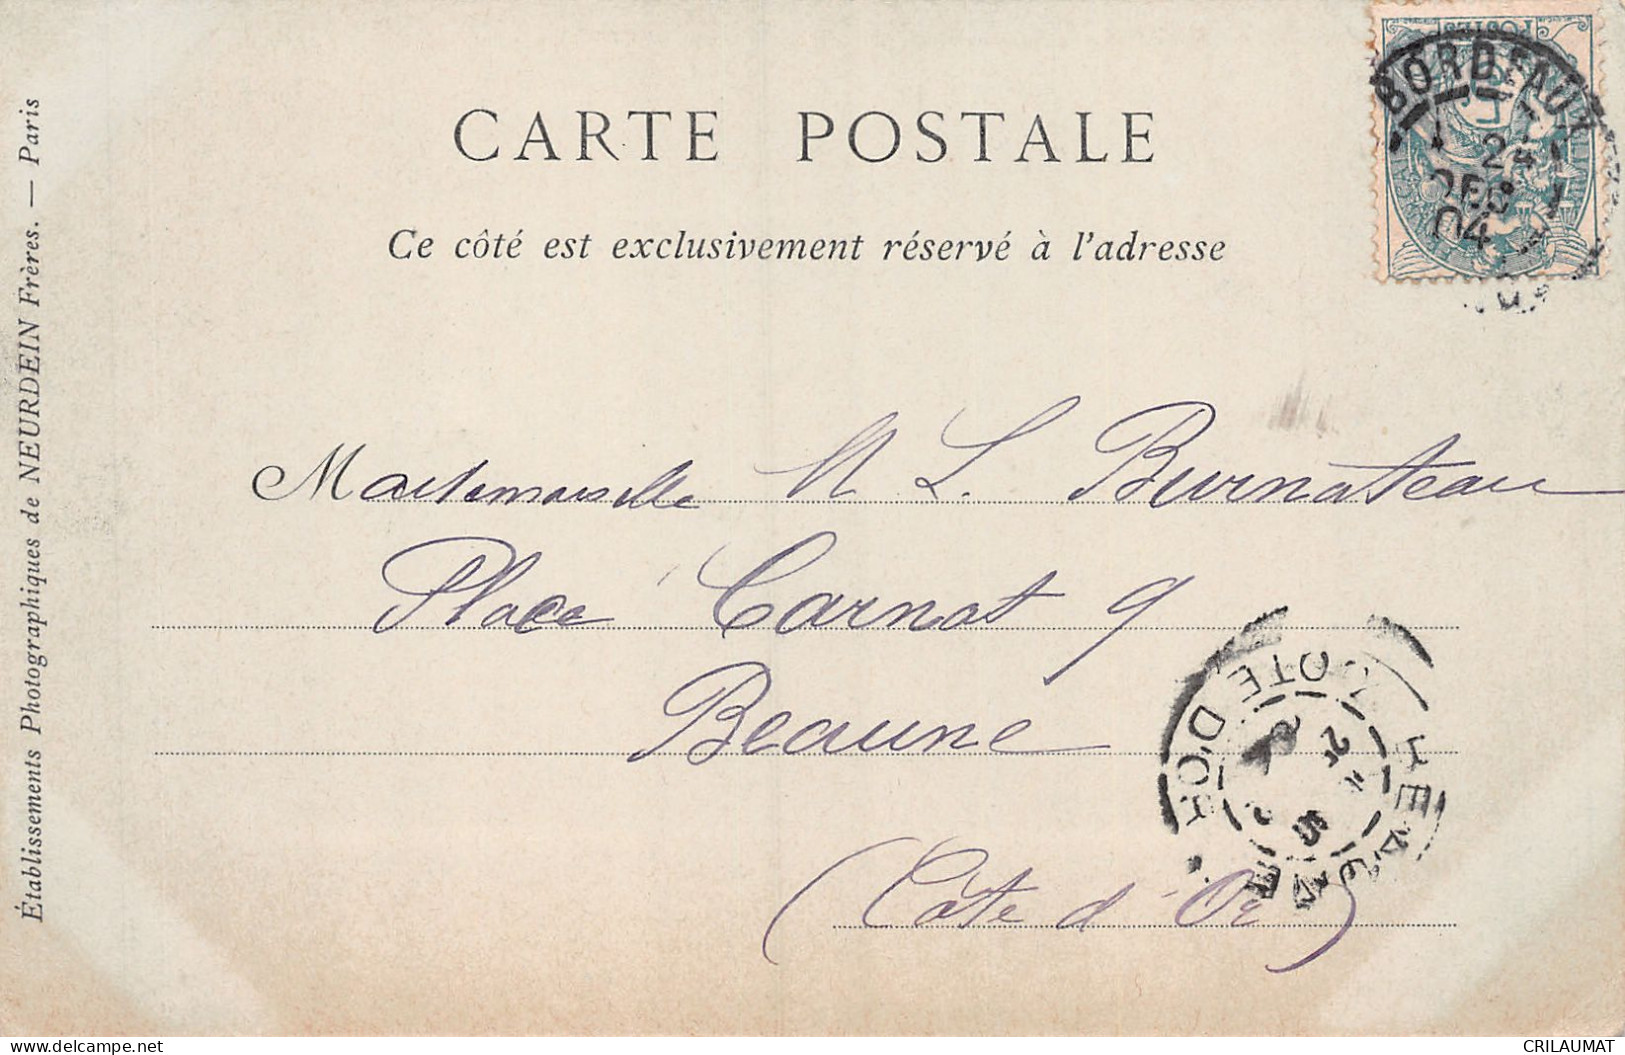 CARTE POSTALE
Ce côté est exclusivement réservé à l'adresse
Établissements Photographiques de NEURDEIN Frères. — Paris
POSTES
BORDEAUX
24
DEC
04
Mademoiselle M L. Burnateau
Place Carnot 9
Beaune
(Côte d'Or)
BEAUNE
COTE D'OR
delcampe.net
CRILAUMAT